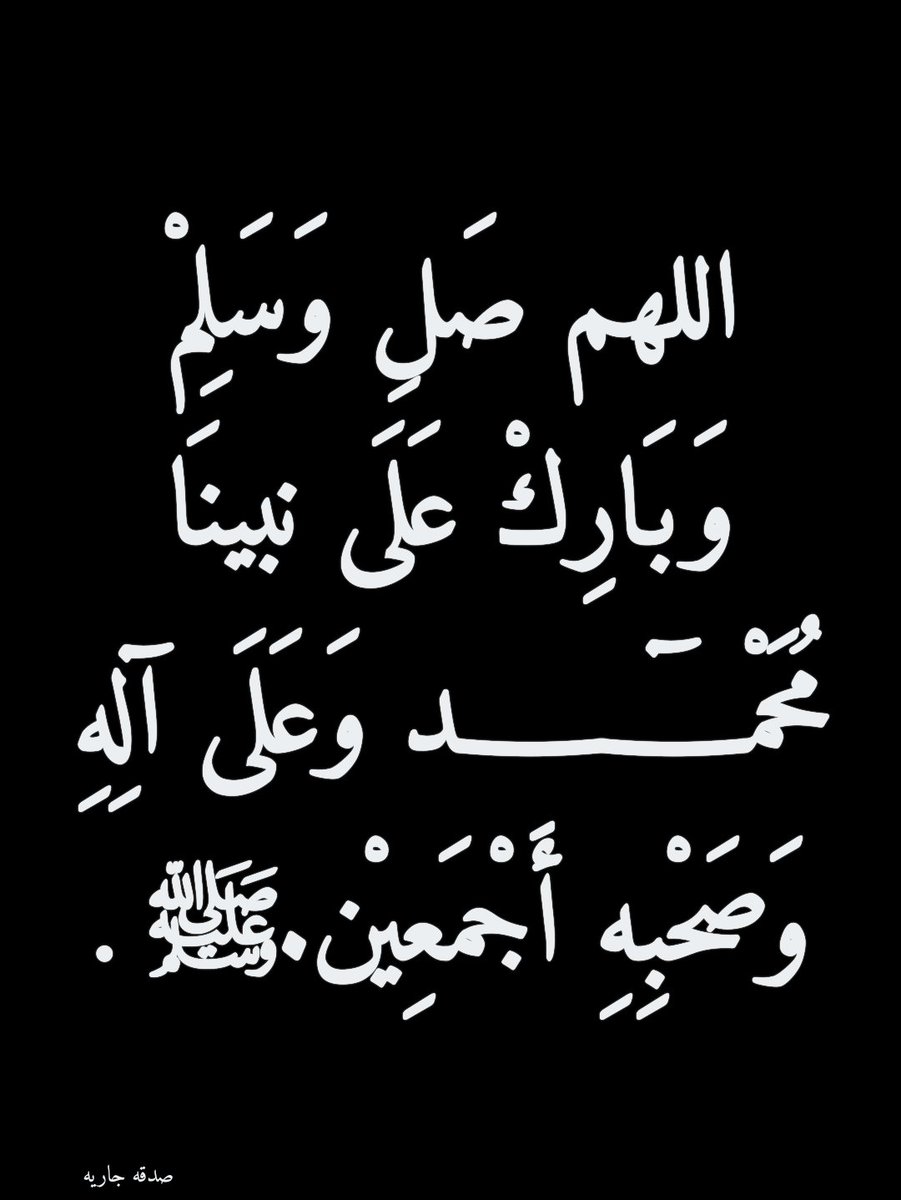 اللهم صَلِ وَسَلِمْ
وَبَارِكْ عَلَى نبينَا
مُحَمْـــــَـــد وَعَلَى آلِهِ
وَصَحْبِهِ أَجْمَعِيْن. ﷺ .
صدقه جاريه